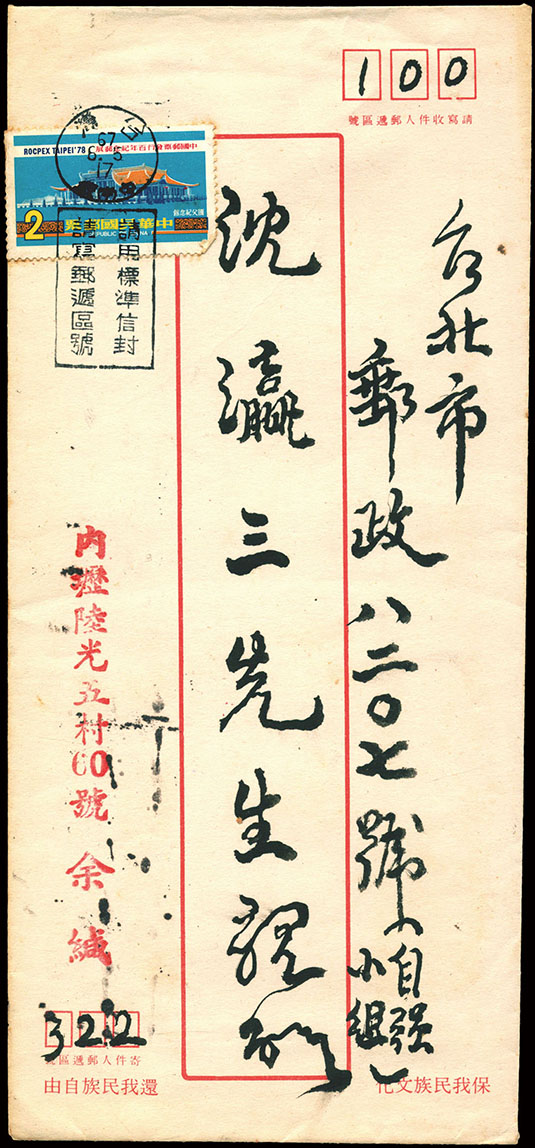 100
請寫收件人郵遞區號
台北市
郵政八二〇七號「自強小組」
沈瀛三先生
ROCPEX TAIPEI '78
中國郵票發行百年紀念郵展
國父紀念館
2
中華民國郵票
REPUBLIC OF CHINA
67
6.5
17
請用標準信封
請寫郵遞區號
內壢陸光五村60號 余緘
322
寄件人郵遞區號
保我民族文化
還我民族自由